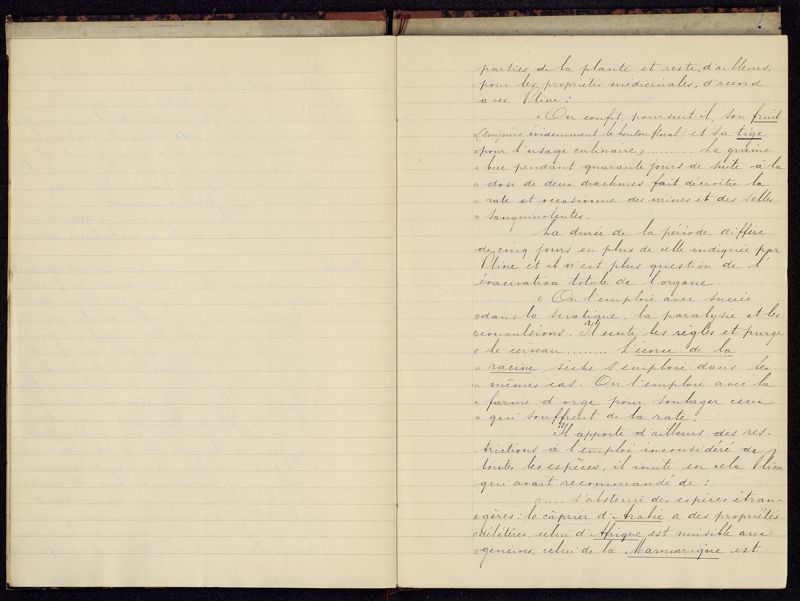 parties de la plante et reste, d'ailleurs,
pour les propriétés médicinales, d'accord
avec Pline :
« On confit, poursuit-il, son fruit
« (toujours évidemment le bouton floral) et sa tige
« pour l'usage culinaire » ......... La graine
« bue pendant quarante jours de suite à la
« dose de deux drachmes fait décroître la
« rate et occasionne des urines et des selles
« sanguinolentes.
La durée de la période diffère
de cinq jours en plus de celle indiquée par
Pline et il n'est plus question de l'
évacuation totale de l'organe.
« On l'emploie avec succès
« dans la sciatique, la paralysie et les
« convulsions. Il excite les règles et purge
« le cerveau ........ L'écorce de la
« racine sèche s'emploie dans les
« mêmes cas. On l'emploie avec la
« farine d'orge pour soulager ceux
« qui souffrent de la rate.
Il apporte d'ailleurs des res-
trictions à l'emploi inconsidéré de
toutes les espèces, il imite en cela Pline
qui avait recommandé de :
« .... s'abstenir des espèces étran-
« gères : le câprier d'Arabie a des propriétés
« délétères, celui d'Afrique est nuisible aux
« gencives, celui de la Marmarique est